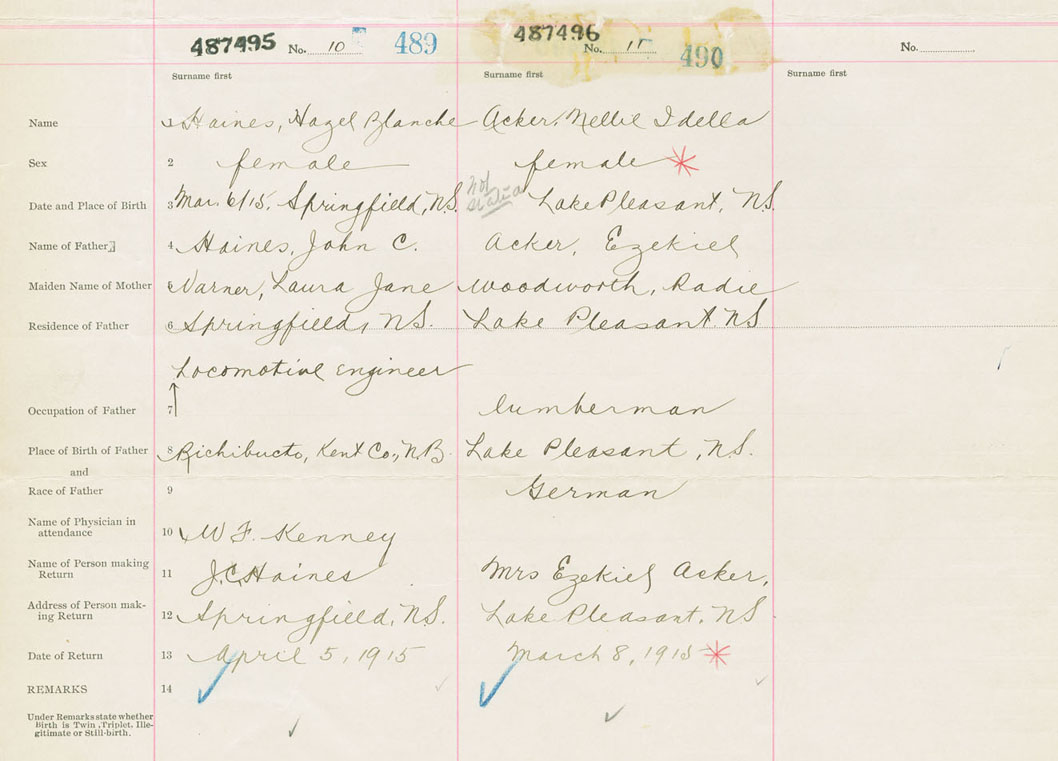 487495 No. 10 489 487496 No. 11 490 No.
Surname first Surname first Surname first
Name 1 Haines, Hazel Blanche Acker, Nellie Idella
Sex 2 female female
not
stated
Date and Place of Birth 3 Mar. 6/15. Springfield, N.S. Lake Pleasant, N.S.
Name of Father 4 Haines, John C. Acker, Ezekiel
Maiden Name of Mother 5 Varner, Laura Jane Woodworth, Radie
Residence of Father 6 Springfield, N.S. Lake Pleasant, N.S.
Locomotive engineer
Occupation of Father 7 lumberman
Place of Birth of Father 8 Richibucto, Kent Co., N.B. Lake Pleasant, N.S.
and
Race of Father 9 German
Name of Physician in
attendance 10 W F. Kenney
Name of Person making
Return 11 J.C. Haines Mrs Ezekiel Acker,
Address of Person mak-
ing Return 12 Springfield, N.S. Lake Pleasant, N.S.
Date of Return 13 April 5, 1915 March 8, 1915
REMARKS 14
Under Remarks state whether
Birth is Twin, Triplet, Ille-
gitimate or Still-birth.